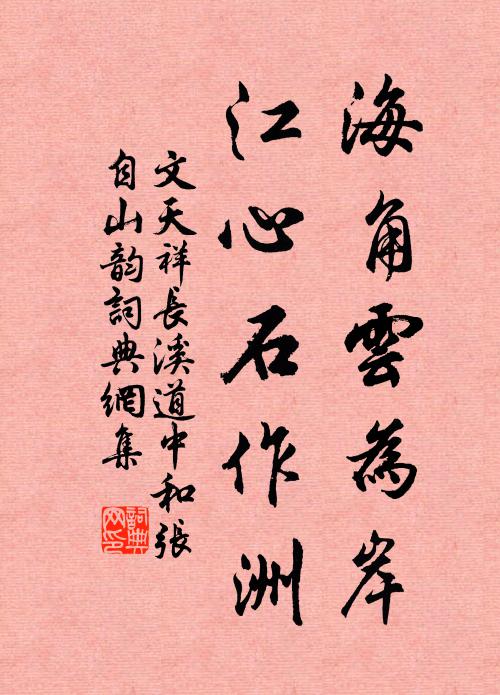 海角雲為岸
江心石作洲
文天祥長溪道中和張
自山韵詞典網集
詞典
网印